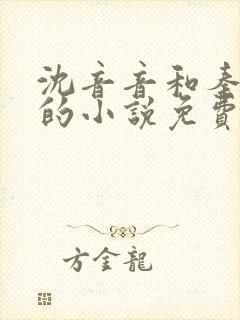 沈音音和秦
的小說免費
方金龍